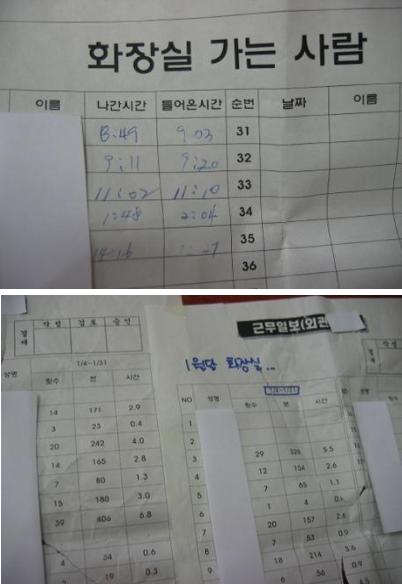 화장실 가는 사람
이름 나간시간 들어온시간 순번 날짜 이름
8:49 9:03 31
9:11 9:20 32
11:02 11:10 33
1:48 2:04 34
14:16 35
36
결재 작성 검토 승인
근무일보(외관
1/4~1/31
1월당 화장실...
성명 횟수 분 시간
NO 성명 횟수 분 시간
14 171 2.9
3 23 0.4
20 242 4.0
14 165 2.8
7 80 1.3
15 180 3.0
39 406 6.8
4 34 0.6
19 0.3
1
2
3 29 5.5
4 12 154 2.6
5 7 65 1.1
6 1 4 0.1
7 20 157 2.6
8 7 53 0.9
9 18 214 3.6
6 56 0.9